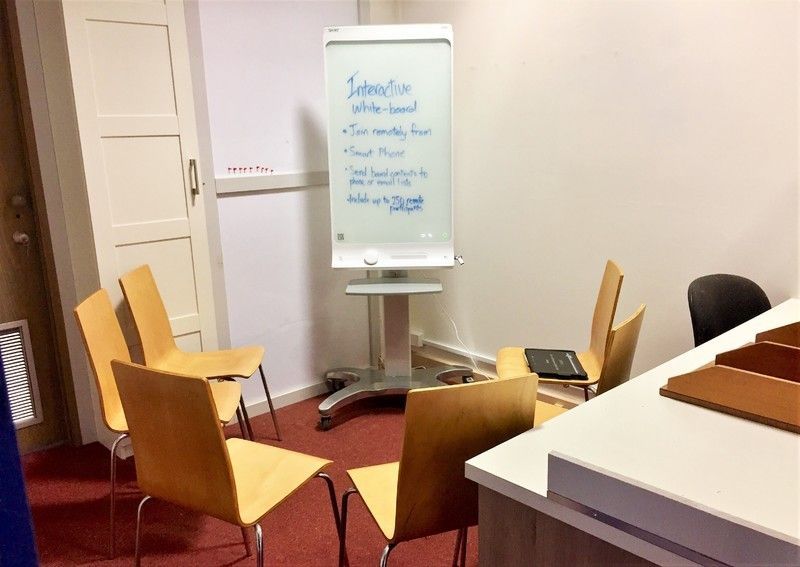 SMART
Interactive
White-board
• Join remotely from
• Smart Phone
• Send board contents to
phone or email lists
• Include up to 250 remote
participants